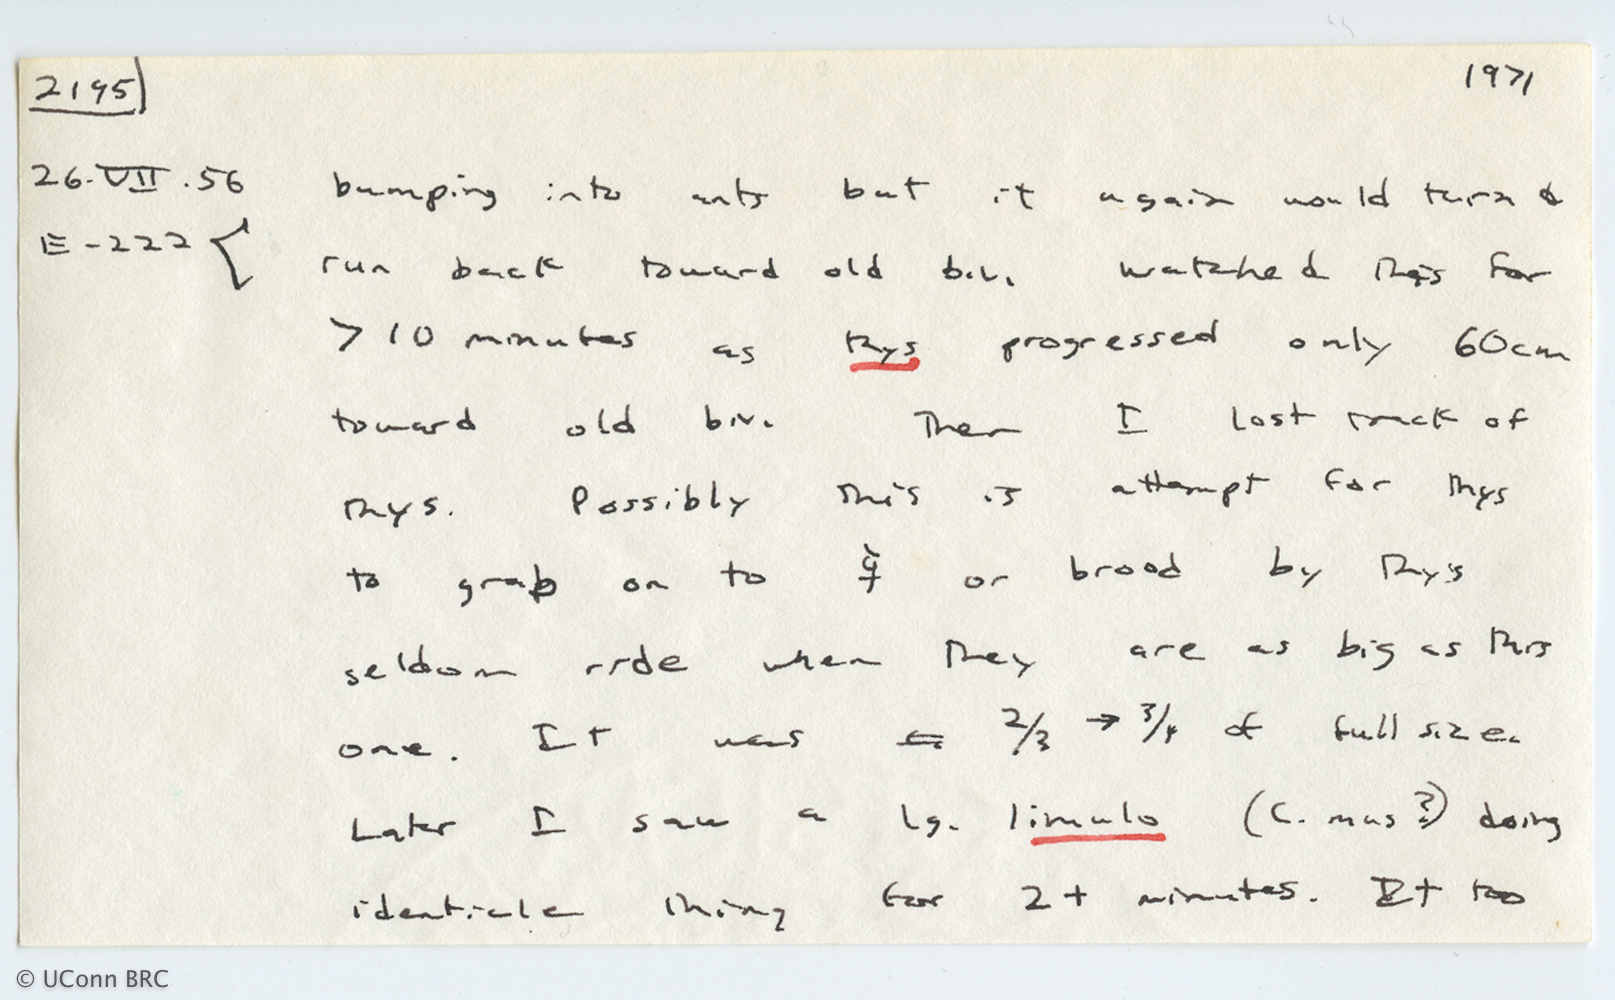 2195 1971
26.VII.56 bumping into ants but it again would turn &
E-222 { run back toward old biv. watched this for
> 10 minutes as thys progressed only 60cm
toward old biv. Then I lost track of
thys. Possibly this is attempt for thys
to grab on to or brood by thys
seldom ride when they are as big as this
one. It was 2/3 → 3/4 of full size.
Later I saw a lg. limulo (C. mus?) doing
identicle thing for 2+ minutes. It too
© UConn BRC